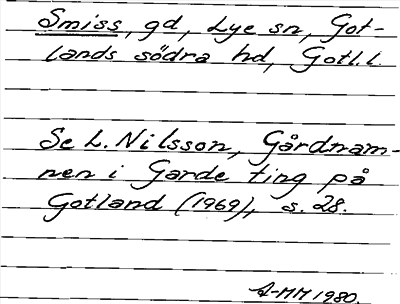 Smiss, gd, Lye sn, Got-
lands södra hd, Gotl. l.
Se L. Nilsson, Gårdnam-
nen i Garde ting på
Gotland (1969), s. 28.
A-MM 1980.